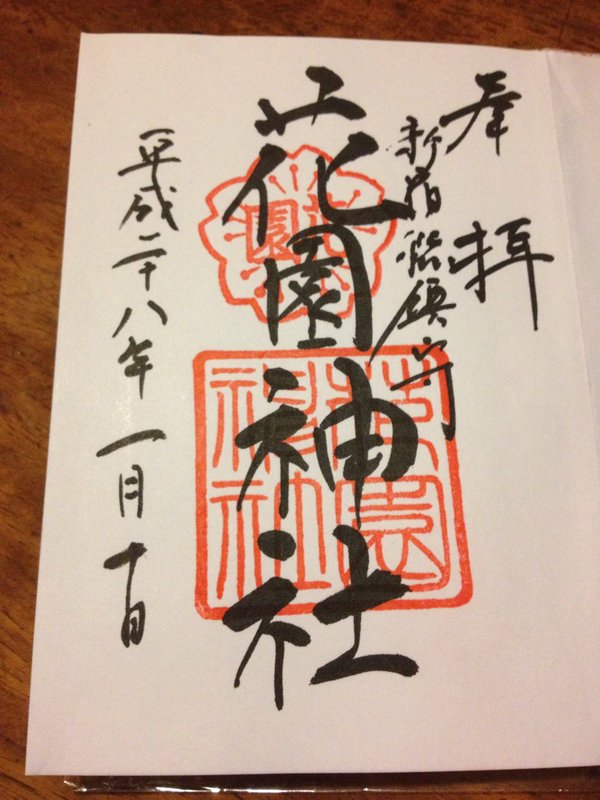 奉拝
新宿総鎮守
花園神社
花園
花園神社
平成二十八年一月十日